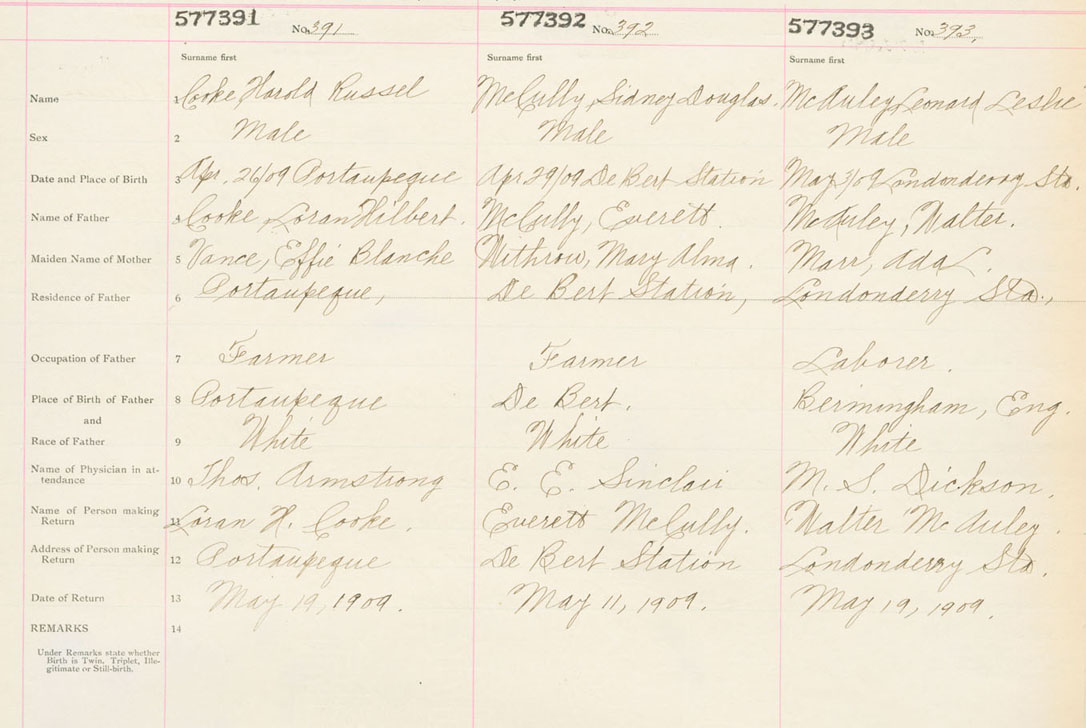 577391 No. 391 577392 No. 392 577393 No. 393,
Surname first Surname first Surname first
Name 1 Cooke, Harold Russel McCully, Sidney Douglas. McAuley, Leonard Leslie
Sex 2 Male Male Male
Date and Place of Birth 3 Apr. 26/09 Portaupeque Apr 29/09 De Bert Station May 3/09 Londonderry Sta.
Name of Father 4 Cooke, Loran Hilbert. McCully, Everett. McAuley, Walter.
Maiden Name of Mother 5 Vance, Effie Blanche Withrow, Mary Alma. Marr, Ada L.
Residence of Father 6 Portaupeque, De Bert Station, Londonderry Sta.,
Occupation of Father 7 Farmer Farmer Laborer.
Place of Birth of Father 8 Portaupeque De Bert. Bermingham, Eng.
and
Race of Father 9 White White White
Name of Physician in at-
tendance 10 Thos. Armstrong E. E. Sinclair M. S. Dickson.
Name of Person making
Return 11 Loran H. Cooke. Everett McCully. Walter McAuley.
Address of Person making
Return 12 Portaupeque De Bert Station Londonderry Sta.
Date of Return 13 May 19, 1909. May 11, 1909. May 19, 1909.
REMARKS 14
Under Remarks state whether
Birth is Twin, Triplet, Ille-
gitimate or Still-birth.